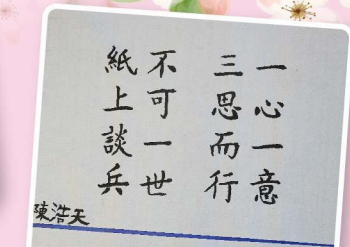 一心一意
三思而行
不可一世
紙上談兵
陳浩天